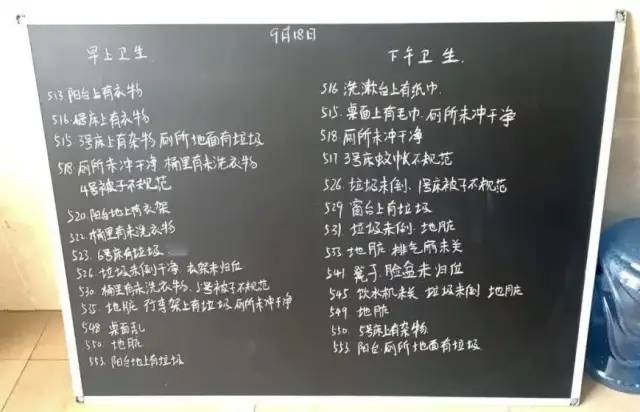 9月18日
早上卫生
513.阳台上有衣物
516.1号床上有衣物
515 3号床上有杂物 厕所地面有垃圾
518.厕所未冲干净 桶里有未洗衣物
4号被子不规范
520.阳台地上有衣架
522.桶里有未洗衣物
523. 6号床有垃圾
526.垃圾未倒干净 衣架未归位
530.桶里有未洗衣物. 5号被子不规范
535.地脏 行李架上有垃圾 厕所未冲干净
548 桌面乱
550.地脏
553.阳台地上有垃圾
下午卫生.
516.洗漱台上有纸巾.
515.桌面上有毛巾.厕所未冲干净
518.厕所未冲干净
517 3号床蚊帐不规范
526.垃圾未倒.1号床被子不规范
529 窗台上有垃圾
531 垃圾未倒.地脏
533 地脏 排气扇未关
541 凳子.脸盆未归位
545 饮水机未关 垃圾未倒 地脏
549 地脏
550. 5号床上有杂物
553 阳台.厕所地面有垃圾.